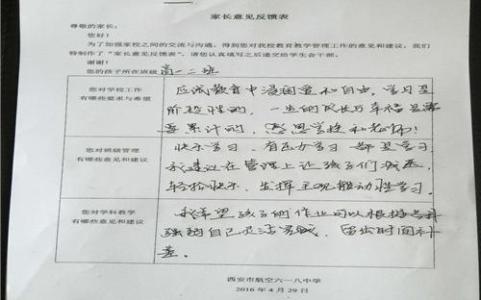 家长意见反馈表
尊敬的家长：
您好！
为了加强家校之间的交流与沟通，得到您对我校教育教学管理工作的意见和建议，我们
特制作了“家长意见反馈表”，请您认真填写之后递交给学生会干部。
谢谢！
您的孩子所在班级高一二班
您对学校工作
有哪些要求与希望
应试教育中浸润温和自由，学习是
阶段性的，一生的成长与幸福是需
要累计的，感恩学校和老师！
您对班级管理
有哪些意见和建议
快乐学习、有压力学习都是学习
我建议在管理上让孩子们减压，
轻松快乐、发挥主观能动性学习。
您对学科教学
有哪些意见和建议
我希望孩子们作业可以根据学科
强弱自己灵活完成，留出时间补
差。
西安市航空六一八中学
2016 年 4 月 29 日